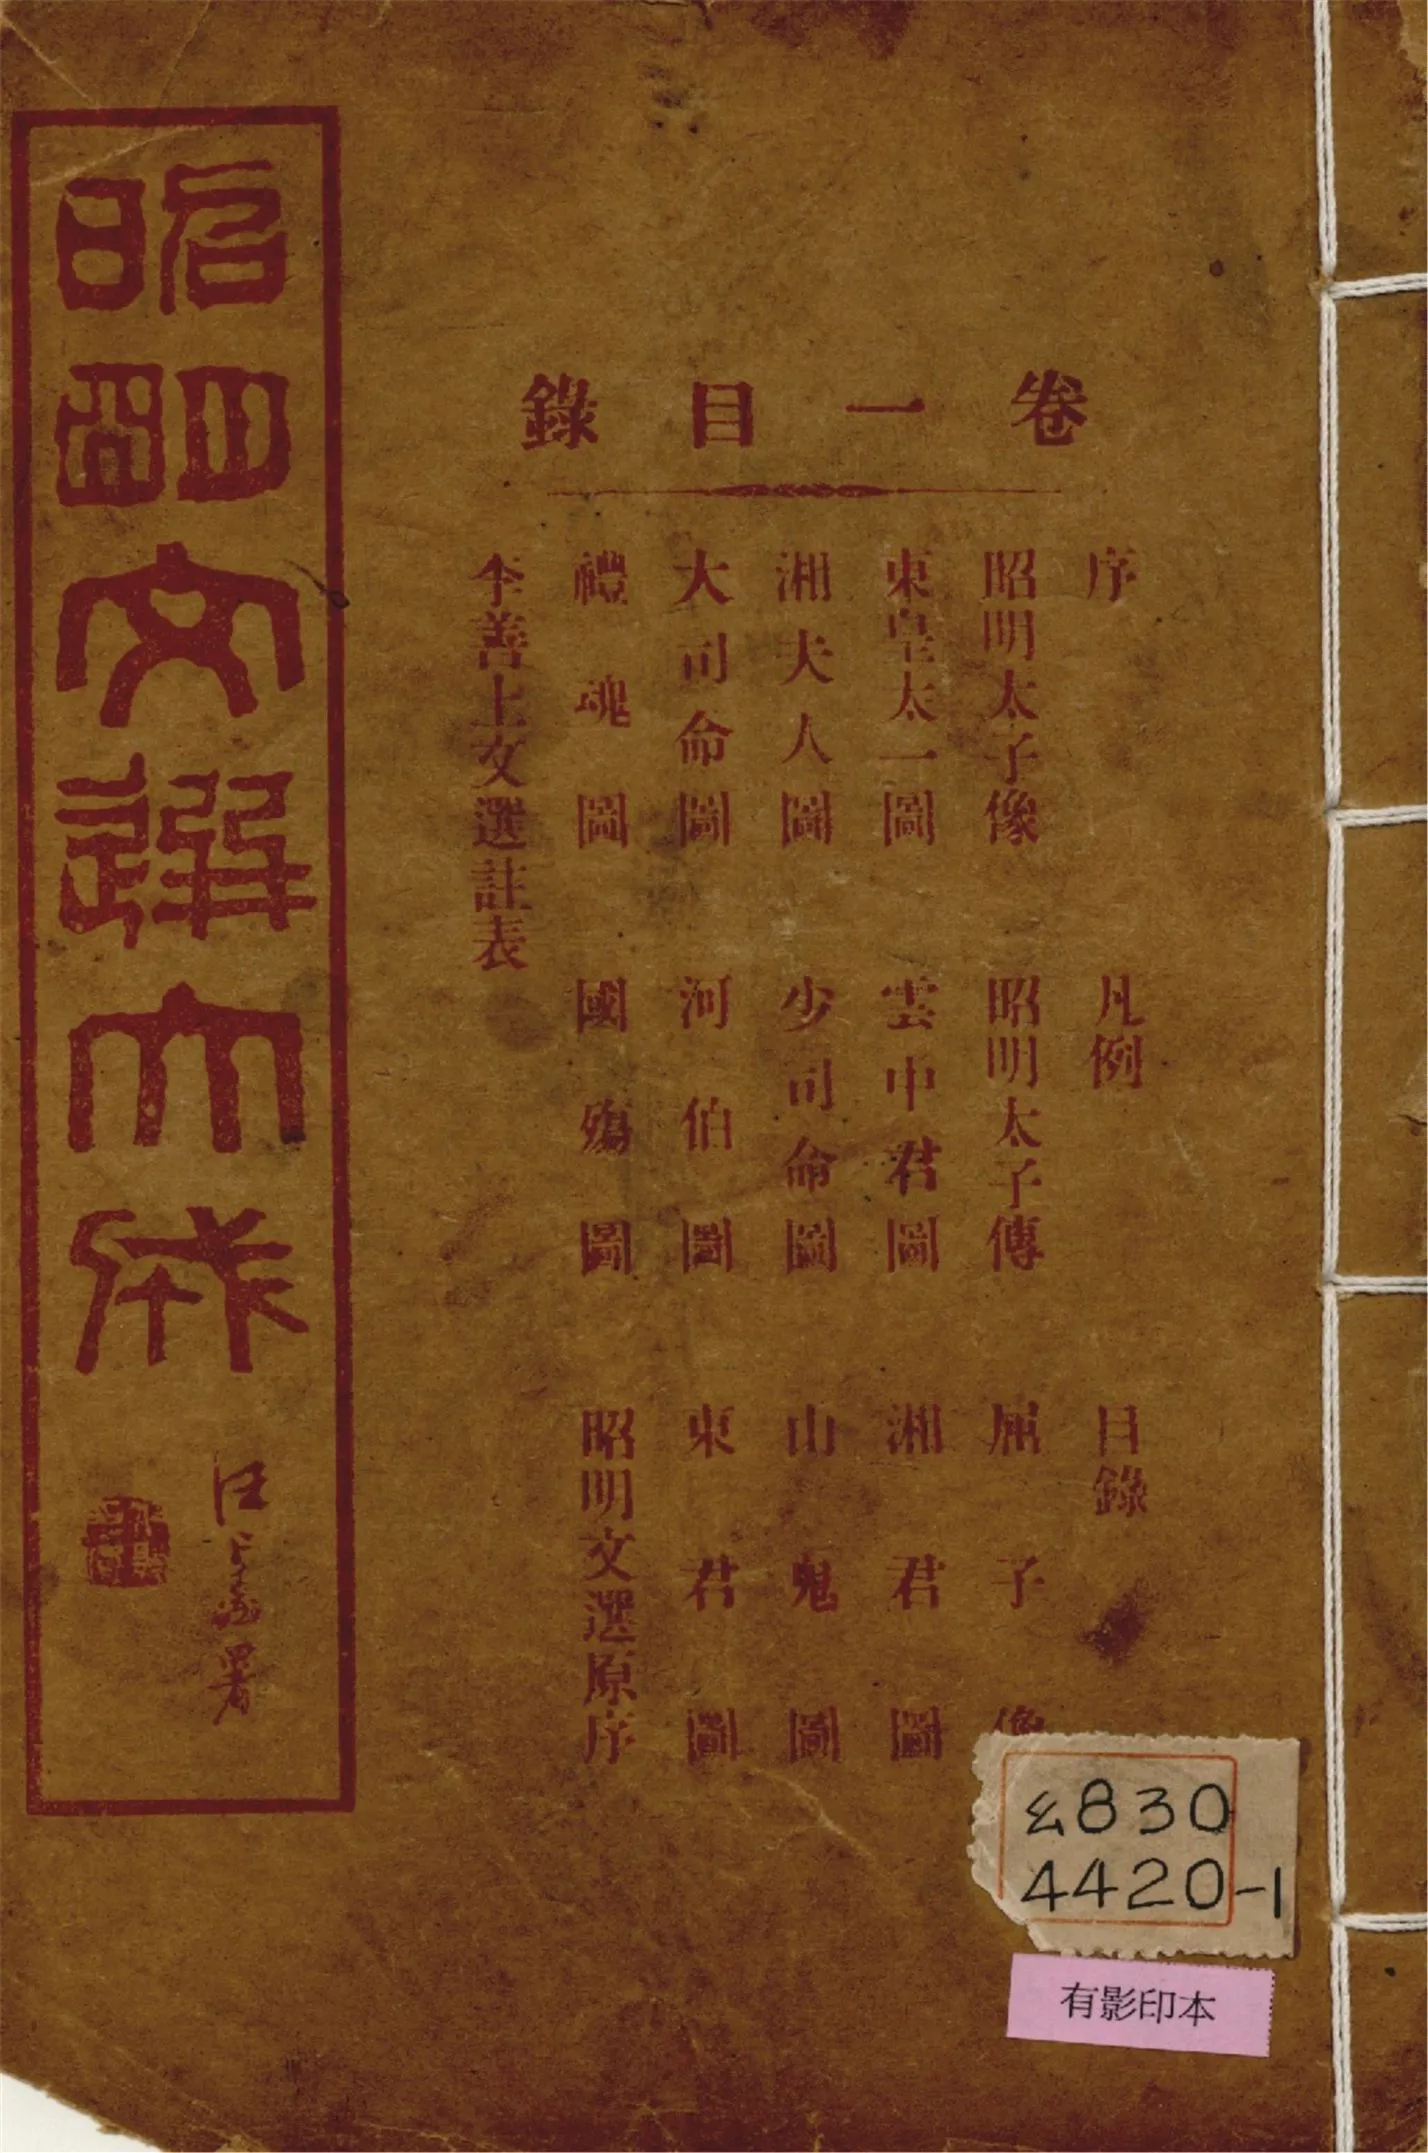 卷一目錄
序　凡例　目錄
昭明太子像　昭明太子傳　屈子像
東皇太一圖　雲中君圖　湘君圖
湘夫人圖　少司命圖　山鬼圖
大司命圖　河伯圖　東君圖
禮魂圖　國殤圖　昭明文選原序
李善上文選註表
昭明文選大成
汪 署
830
4420-1
有影印本